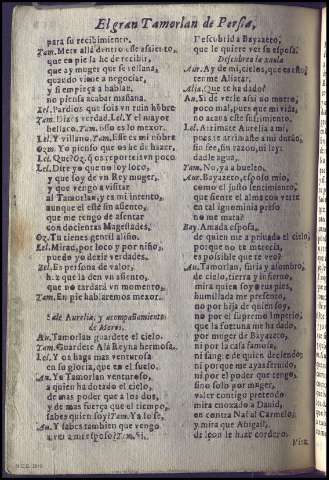 El gran Tamorlan de Persa,
para su recibimiento.
Tam. Mete allà dentro esse asiento,
que en pie la he de recibir,
que ay muger que se vellana,
quando viene a negociar,
y si empieça a hablar,
no piensa acabar mañana.
Lel. Pardiez que sois vn ruin hõbre
Tam. Dizes verdad. Lel. Y el mayor
bellaco. Tam. Esso es lo mexor.
Lel. Y villano. Tam. Esse es mi nõbre
Ozm. Yo pienso que os he de hazer.
Lel. Que? Oz. q̃ os reporteis vn poco
Lel. Dire yo que no soy loco,
y que soy de vn Rey muger,
y que vengo a visitar
al Tamorlan, y es mi intento,
aunque el esté sin asiento,
que me tengo de asentar
con docientas Magestades,
Oz. Tu tienes gentil aliño.
Lel. Mirad, por loco y por niño,
puedo yo dezir verdades.
Zel. Es persona de valor,
haz que la den vn asiento,
que no tardarà vn momento,
Tam. En pie hablaremos mexor.
Sale Aurelia, y acompañamiento
de Moros.
Au. Tamorlan guardete el cielo.
Tam. Guardete Alà Reyna hermosa.
Lel. Y os haga mas venturosa
en su gloria, que en el suelo.
Au. Yo Tamorlan venturoso,
a quien ha dotado el cielo,
de mas poder que a los dos,
y de mas fuerça que el tiempo,
sabes quien soy? Tam. Ya lo se,
Au. Y sabes tambien que vengo
a ver a mi esposo? Tam. Si,
Descubrid a Bayazeto,
que le quiere ver su esposa.
Descubren la xaula
Aur. Ay de mi, cielos, que es esto,
terme Aliatar.
Alia. Que te ha dado?
Au. Si de verle assi no muero,
poco mal, pues que mi vida,
no acaba este sufrimiento.
Lel. Arrimate Aurelia a mi,
pues te arrimaste a mi dueño,
sin fee, sin razon, ni ley
dadle agua,
Tam. No, ya a buelto,
Aur. Bayazeto, esposo mio,
como el justo sentimiento,
que siente el alma con verte
en tal ignominia preso
no me mata?
Bay. Amada esposa,
de quien me a priuado el cielo
porque no te merecia,
es posible que te veo?
Au. Tamorlan, furia y assombro,
de cielo, tierra y infierno,
mira quien soy a tus pies,
humillada me presento,
no por hija de quien soy,
no por el supremo Imperio,
que la fortuna me ha dado,
por muger de Bayazeto,
ni por la casa famosa,
ni sangre de quien deciendo,
ni por que me ayas rendido,
ni por el poder que tengo,
sino solo por muger,
valer contigo pretendo
mira enojado a Dauid,
en contra Nabal Carmelo,
y mira que Abigail,
de leon le hizo cordero.
Mira